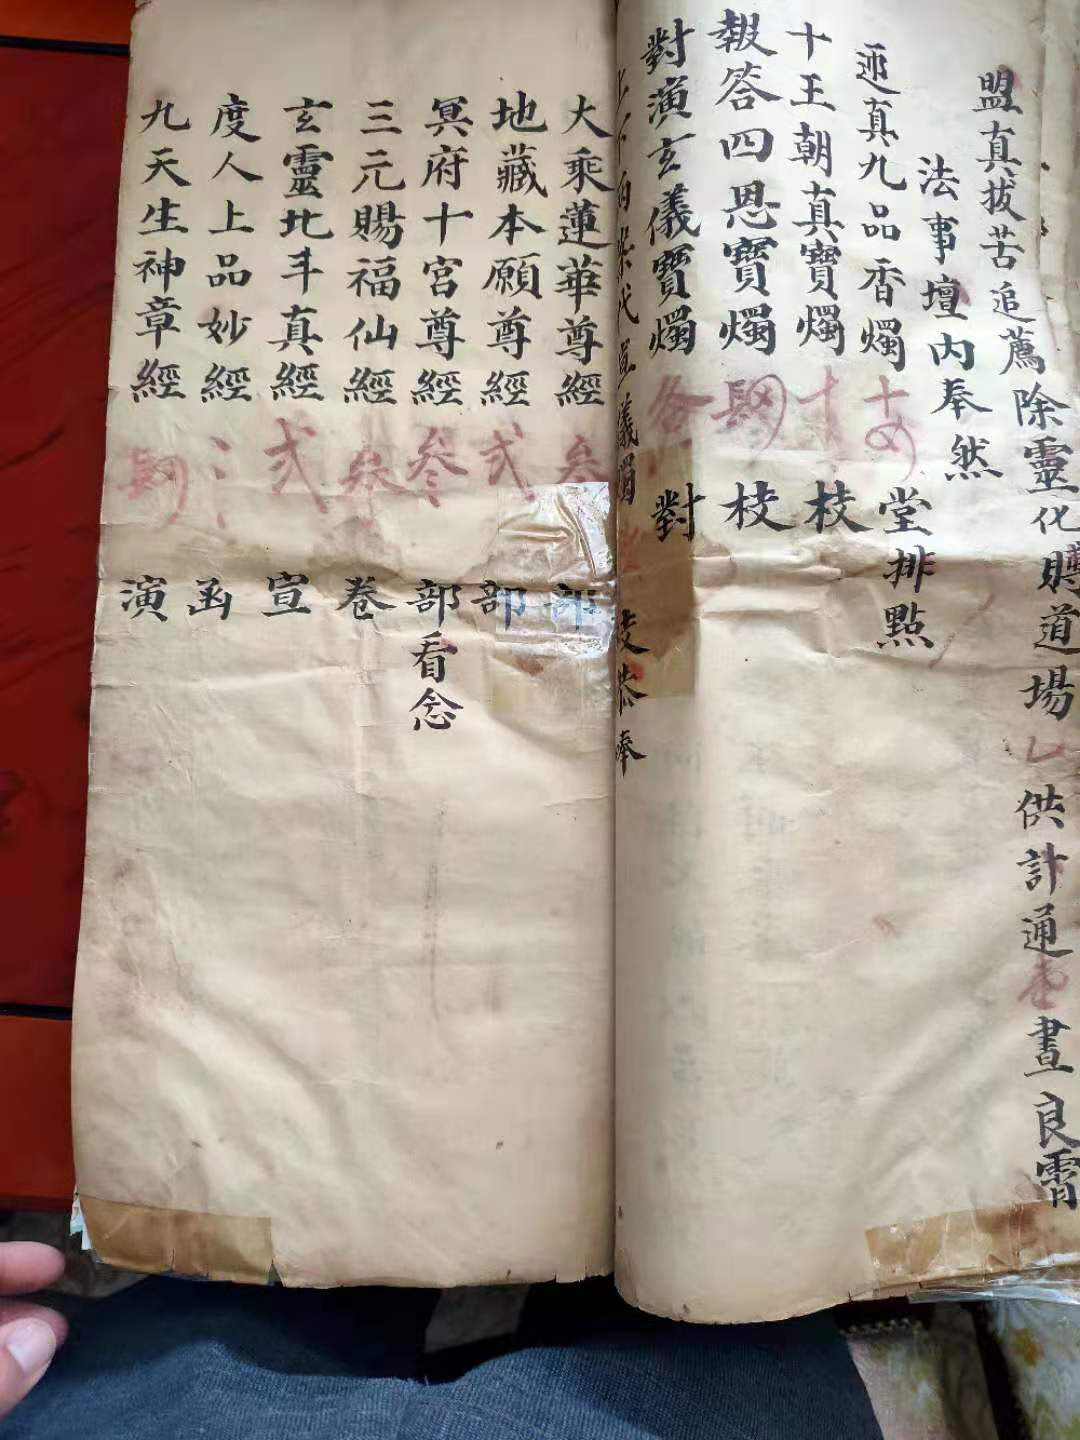 盟真拔苦追薦除靈化賻道場
供計通
晝良霄
法事壇内奉然
迊真九品香燭
堂排點
十王朝真寶燭十枝
報答四恩寶燭
枝
對演玄儀寶燭
對
恭奉
大乘蓮華尊經叁部
地藏本願尊經弍部
冥府十宮尊經叁部看念
三元賜福仙經叁卷
玄靈北斗真經弍宣
度人上品妙經
函
九天生神章經
演